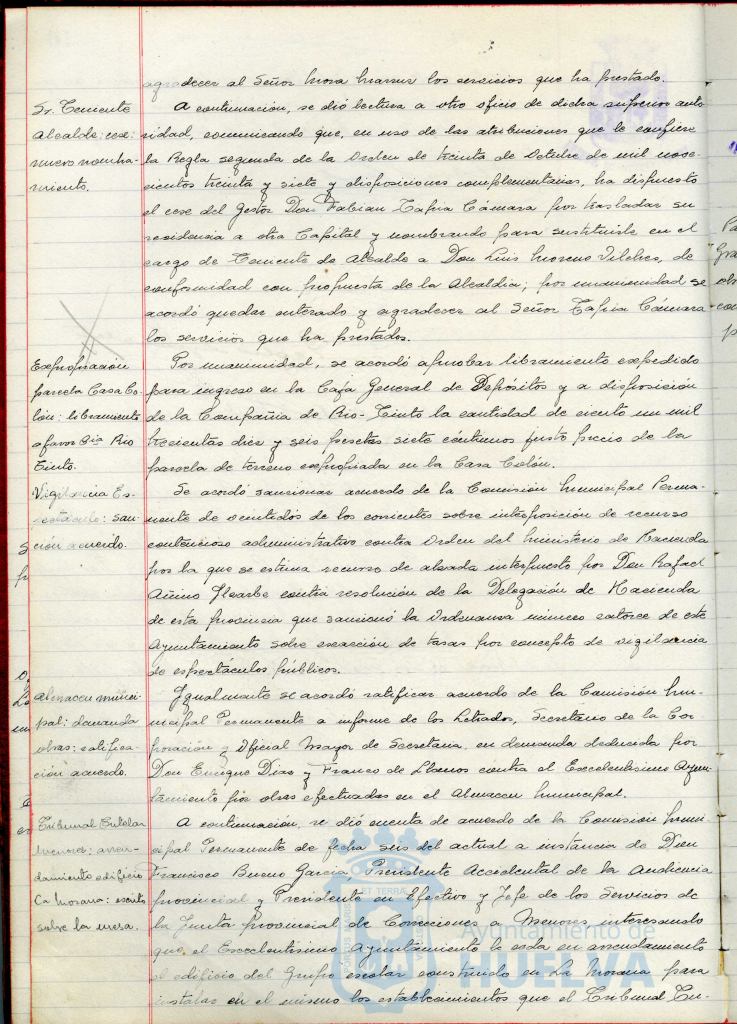 agradecer al Señor Mora Narsur los servicios que ha prestado.
Sr. Teniente
Alcalde: cese:
nuevo nombra-
miento.
A continuación, se dió lectura a otro oficio de dicha superior auto-
ridad, comunicando que, en uso de las atribuciones que le confiere
la Regla segunda de la Orden de treinta de Octubre de mil nove-
cientos treinta y siete y disposiciones complementarias, ha dispuesto
el cese del Gestor Don Fabian Tapia Cámara por trasladar su
residencia a otra Capital y nombrando para sustituirle en el
cargo de Teniente de Alcalde a Don Luis Moreno Vilches, de
conformidad con propuesta de la Alcaldia; por unanimidad se
acordó quedar enterado y agradecer al Señor Tapia Cámara
los servicios que ha prestados.
Expropiación
parcela Casa Co-
lón: libramiento
a favor Cia Rio
Tinto.
Por unanimidad, se acordó aprobar libramiento expedido
para ingreso en la Caja General de Depósitos y a disposición
de la Compañia de Rio-Tinto la cantidad de ciento un mil
trecientas diez y seis pesetas siete céntimos justo precio de la
parcela de terreno expropiada en la Casa Colón.
Vigilancia Es-
pectáculo: san-
ción acuerdo.
Se acordó sancionar acuerdo de la Comisión Municipal Perma-
nente de veintidós de los corrientes sobre interposición de recurso
contencioso administrativo contra Orden del Ministerio de Hacienda
por la que se estima recurso de alzada interpuesto por Don Rafael
contra resolución de la Delegación de Hacienda
de esta provincia que sancionó la Ordenanza número catorce de este
Ayuntamiento sobre exacción de tasas por concepto de vigilancia
de espectáculos públicos.
Almacen munici-
pal: demanda
obras: ratifica-
ción acuerdo.
Igualmente se acordó ratificar acuerdo de la Comisión Mu-
nicipal Permanente a informe de los Letrados, Secretario de la Cor-
poración y Oficial Mayor de Secretaria, en demanda deducida por
Don Enrique Diaz y Franco de Llanos contra el Excelentisimo Ayun-
tamiento por obras efectuadas en el Almacen Municipal.
Tribunal Tutelar
Menores: arren-
damiento edificio
La Morana: escrito
sobre la mesa.
A continuación, se dió cuenta de acuerdo de la Comisión Muni-
cipal Permanente de fecha seis del actual a instancia de Don
Francisco Bueno Garcia, Presidente Accidental de la Audiencia
provincial y Presidente en Efectivo y Jefe de los Servicios de
la Junta Provincial de Correcciones a Menores interesando
que el Excelentisimo Ayuntamiento le ceda en arrendamiento
el edificio del Grupo escolar construido en La Morana para
instalar en el mismo los establecimientos que el Tribunal Tu-
Ayuntamiento de
HUELVA